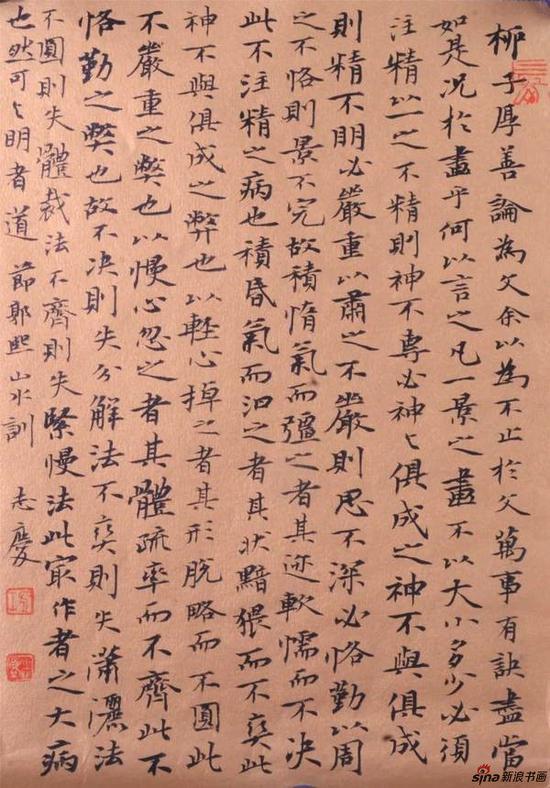 柳子厚善論為文余以為不止於文萬事有訣盡當
如是况於畫乎何以言之凡一景之畫不以大小多少必須
注精以一之不精則神不專必神与俱成之神不與俱成
則精不明必嚴重以肅之不嚴則思不深必恪勤以周
之不恪則景不完故積惰氣而彊之者其迹軟懦而不决
此不注精之病也積昏氣而汩之者其狀黯猥而不爽此
神不與俱成之弊也以輕心掉之者其形脫略而不圓此
不嚴重之弊也以慢心忽之者其體疏率而不齊此不
恪勤之弊也故不决則失分解法不爽則失瀟灑法
不圓則失體裁法不齊則失緊慢法此最作者之大病
也然可与明者道 節郭熙山水訓 志慶
sina新浪书画